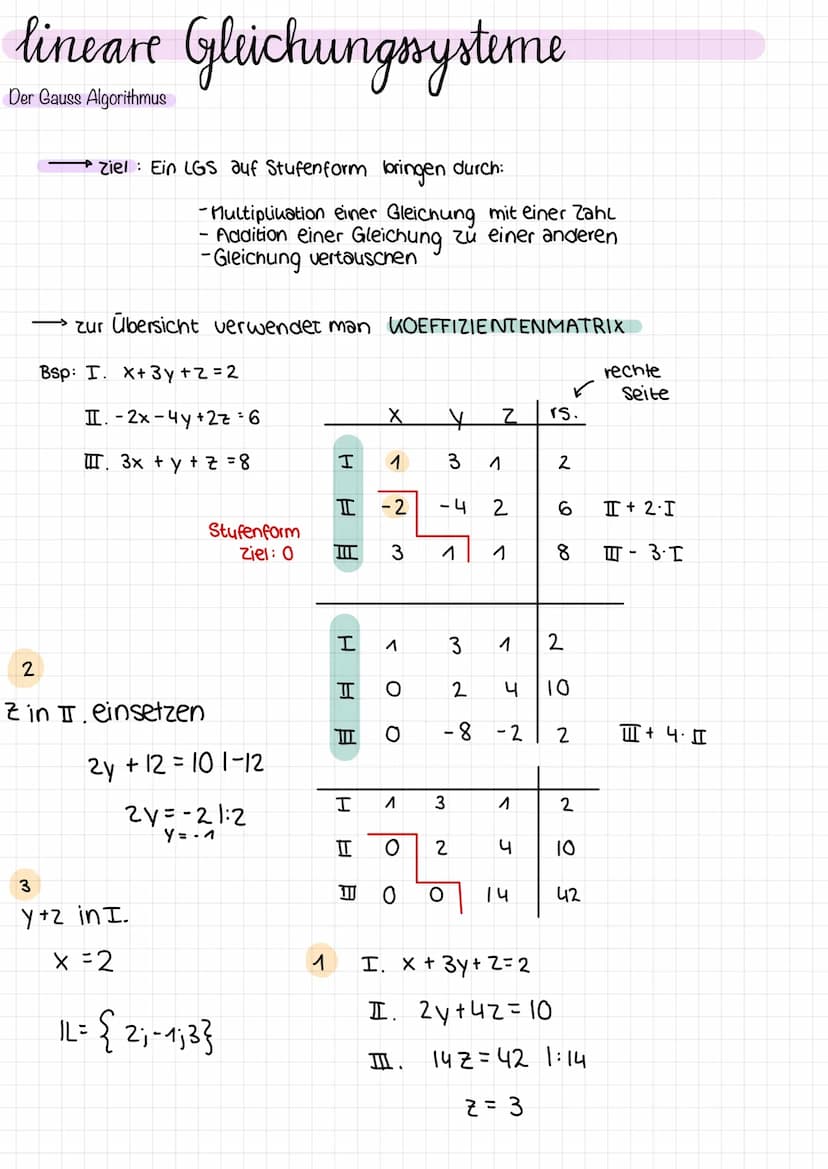 lineare Gleichungssysteme
Der Gauss Algorithmus
→ Ziel : Ein LGS auf Stufenform bringen durch:
- Multiplikation einer Gleichung mit einer Zahl
- Addition einer Gleichung zu einer anderen
- Gleichung vertauschen
→ zur Übersicht verwendet man KOEFFIZIENTENMATRIX
Bsp: I. x+3y+z=2
II. -2x-4y+2z=6
III. 3x+y+z=8
rechte
Seite
x y z rs.
I 1 3 1 2
II -2 -4 2 6 II + 2·I
III 3 1 1 8 III - 3·I
Stufenform
Ziel: 0
I 1 3 1 2
II 0 2 4 10
III 0 -8 -2 2 III + 4·II
I 1 3 1 2
II 0 2 4 10
III 0 0 14 42
1 I. x+3y+z=2
II. 2y+4z=10
III. 14z=42 |:14
z = 3
2
z in II. einsetzen
2y + 12 = 10 |-12
2y = -2 |:2
y = -1
3
y+z in I.
x = 2
IL= { 2;-1;3}